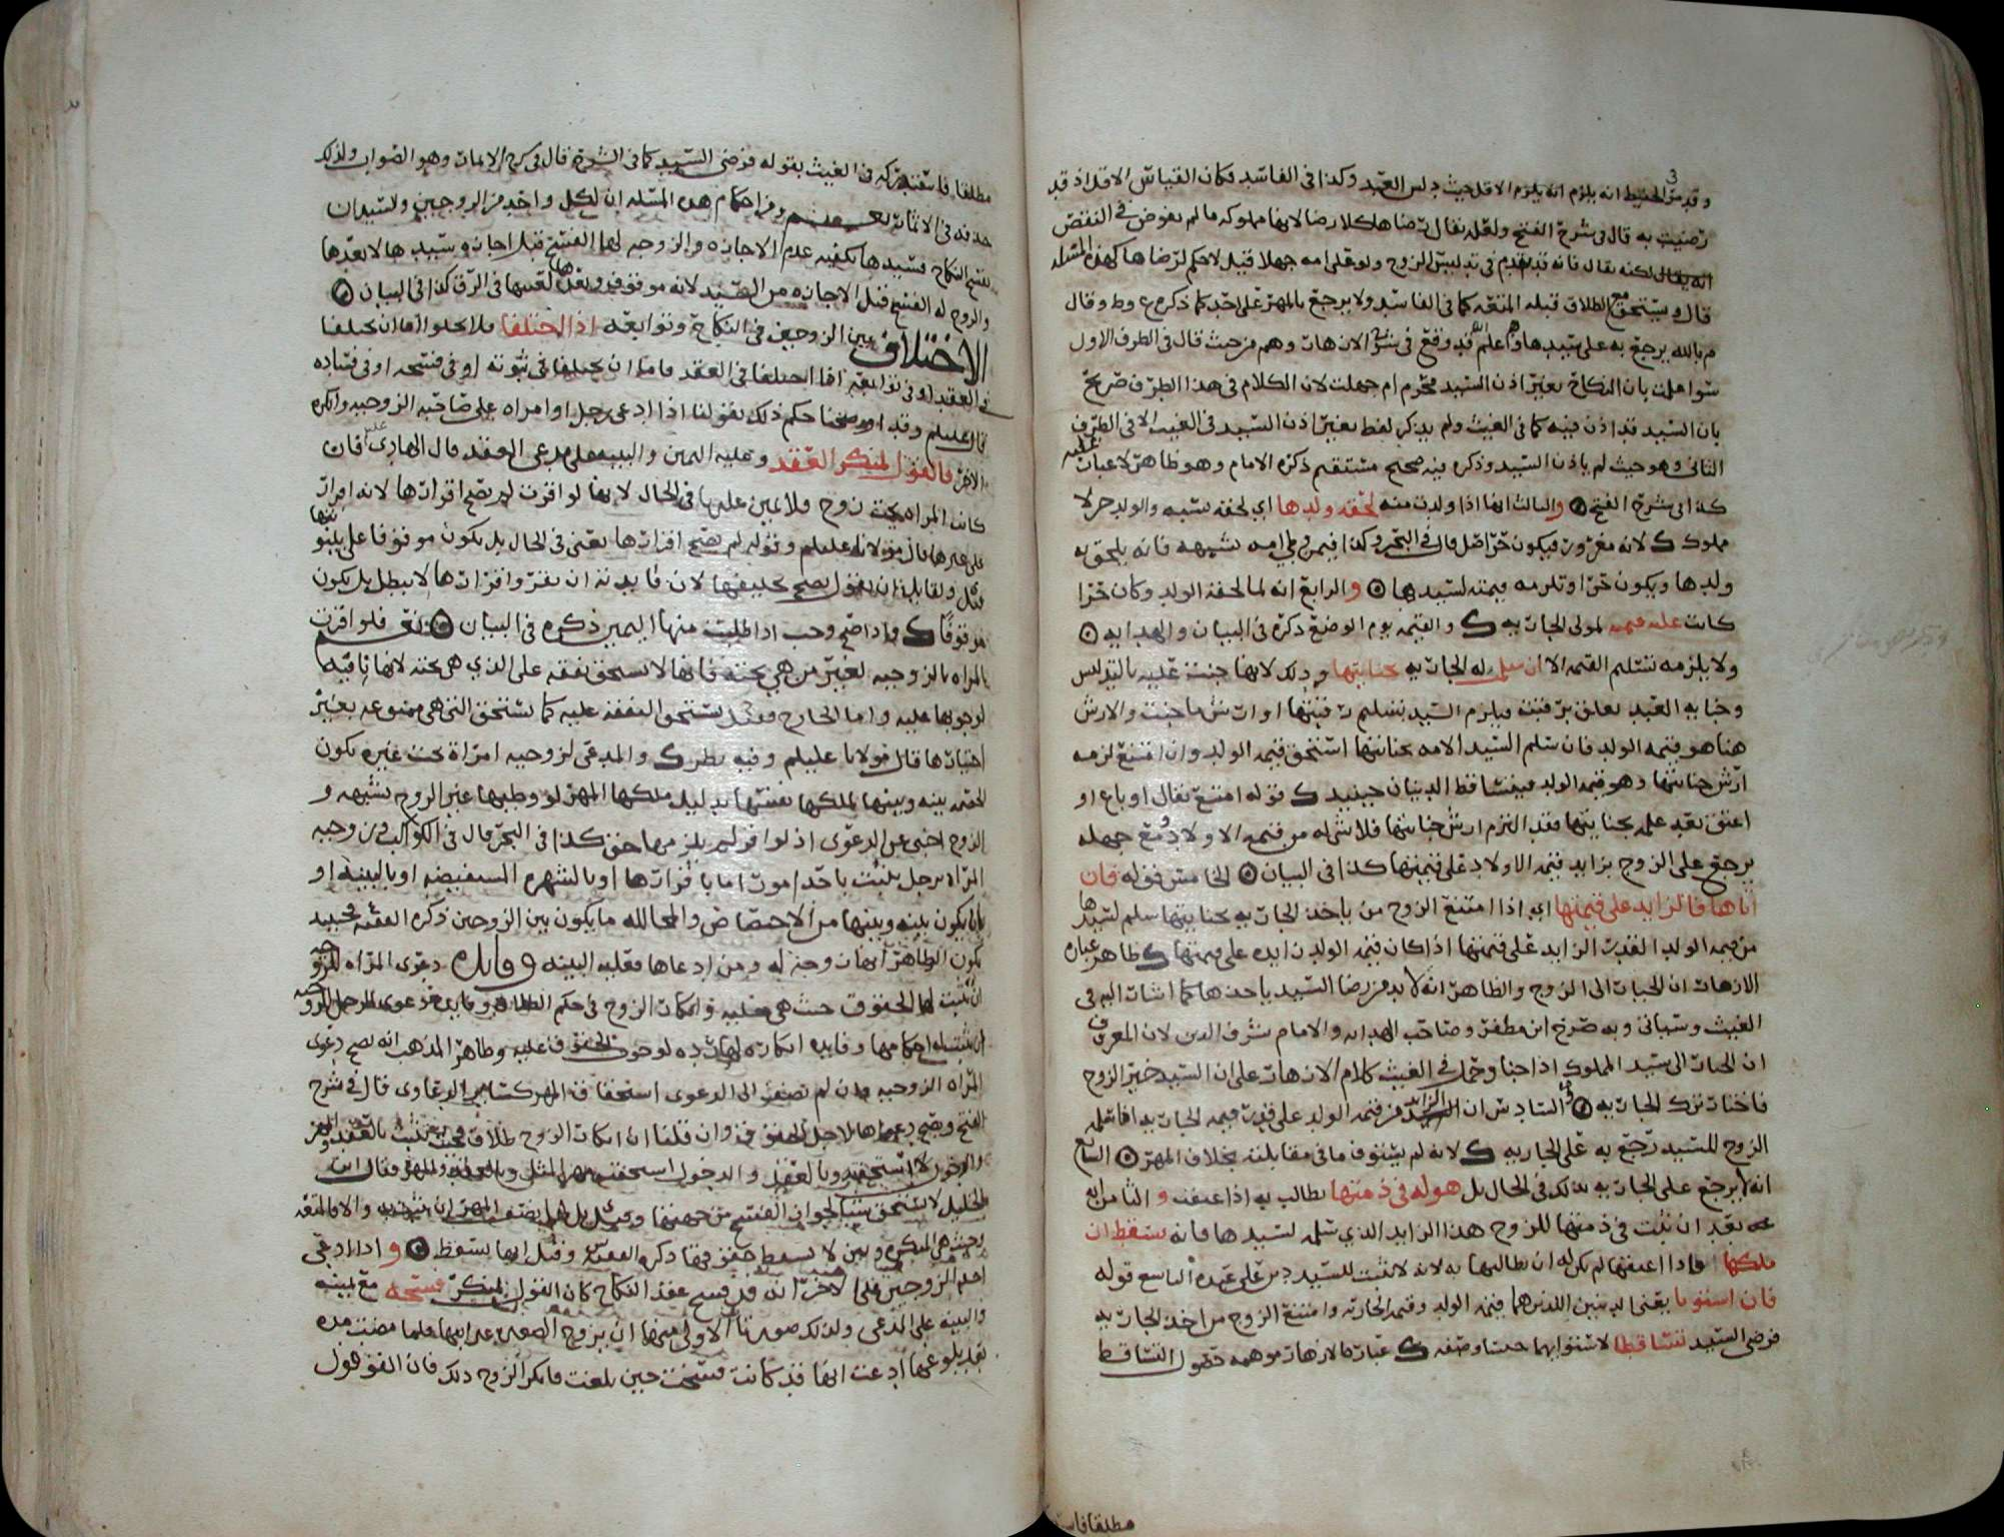 وقد مر الحفيظ انه يلزم انه يلزم الاقل حيث دلس العبد وكذا في الفاسد فكان القياس الاقل اذ قد
رضيت به قال في شرح الفتح ولعله يقال رضاها كلا رضا لانها مملوكه مالم يفوض في النقض
انه يقال لكنه يقال فانه قد تقدم في تدليس الزوج ولو قلى امه جهلا قيل لا حكم لرضاها كهذه المسئله
قال ويستحق مع الطلاق قبله المتعه كما في الفاسد ولا يرجع بالمهر على احد كما ذكره ع وط وقال
م بالله يرجع به على سيدها والله اعلم قد وقع في شرح الازهار وهم من حيث قال في الطرف الاول
سوا علمت بان النكاح بغير اذن السيد محرم ام جهلت لان الكلام في هذا الطرف صريح
بان السيد قد اذن فيه كما في الغيث ولم يذكر لفظ بغير اذن السيد في الغيث الا في الطرف
الثاني وهو حيث لم ياذن السيد وذكره فيه صحيح مستقيم ذكره الامام وهو ظاهر لا غبار عليه
كذا في شرح الفتح والثالث انها اذا ولدت منه لحقه ولدها اي لحقه نسبه والولد حر لا
مملوك ك لانه مغرور فيكون حر اصل قال في البحر وكذا فيمن وطي امه بشبهه فانه يلحق به
ولدها ويكون حرا وتلزمه قيمته لسيدها والرابع انه لما لحقه الولد وكان حرا
كانت عليه قيمته لمولى الجاريه ك والقيمه يوم الوضع ذكره في البيان والهدايه
ولا يلزمه تسليم القيمه الا ان سلمت له الجاريه بجنايتها وذلك لانها جنت عليه بالتدليس
وجنايه العبد تعلق برقبته فيلزم السيد تسليم رقبتها او ارش ما جنت والارش
هنا هو قيمه الولد فان سلم السيد الامه بجنايتها استحق قيمه الولد وان امتنع لزمه
ارش جنايتها وهو قيمه الولد فيتساقط الدينان حينئذ ك قوله امتنع يقال او باع او
اعتق بعد علمه بجنايتها فقد التزم ارش جنايتها فلا شي له من قيمه الاولاد ومع جهله
يرجع على الزوج بزايد قيمه الاولاد على قيمتها كذا في البيان الخامس قوله فان
اباها فالزايد على قيمتها اي اذا امتنع الزوج من ياخذ الجاريه بجنايتها سلم لسيدها
من قيمه الولد القدر الزايد على قيمتها اذا كان قيمه الولد زايده على قيمتها ك ظاهر عباره
الازهار ان الخيار الى الزوج والظاهر انه لا بد من رضا السيد ياخذها كما اشار اليه في
الغيث وسياتي وبه صرح ابن مظفر وصاحب الهدايه والامام شرف الدين لان المعروف
ان الخيار الى سيد المملوك اذا جنا وحمل في الغيث كلام الازهار على ان السيد خير الزوج
فاختار ترك الجاريه والسادس ان الزايد من قيمه الولد على قدر قيمه الجاريه اذا سلمه
الزوج للسيد رجع به على الجاريه ك لانه لم يستوف ما في مقابلته بخلاف المهر السابع
انه لا يرجع على الجاريه بذلك في الحال بل هو له في ذمتها يطالب به اذا عتقت والثامن انه
بعد ان ثبت في ذمتها للزوج هذا الزايد الذي سلمه لسيدها فانه يسقط ان
ملكها فاذا اعتقها لم يكن له ان يطالبها به لانه لا يثبت للسيد دين على عبده التاسع قوله
فان استويا يعني الدينين اللذين هما قيمه الولد وقيمه الجاريه وامتنع الزوج من اخذ الجاريه
فرضي السيد تساقطا لاستوايهما جنسا وصفه ك عباره الازهار موهمه حصول التساقط
مطلقا فاست
مطلقا فاستغنى تركه في الغيث بقوله فرضي السيد كما في الشرح قال في كره الامام وهو الصواب ولذلك
حذفه في الاثمار ومن احكام هذه المسئله ان لكل واحد من الزوجين ولسيدان
يفسخ النكاح فسيدها يكفيه عدم الاجازه والزوجه لها الفسخ قبل اجازه سيدها لا بعدها
والزوج له الفسخ قبل الاجازه من السيد لانه موقوف وبعدها لعيبها في الرق كذا في البيان
الاختلاف بين الزوجين في النكاح وتوابعه اذا اختلفا فلا يخلوا اما ان يختلفا
في العقد او في توابعه اما اذا اختلفا في العقد فاما ان يختلفا في ثبوته او في فسخه او في فساده
قال عليلم وقد اوضحنا حكم ذلك بقولنا اذا ادعى رجل او امراه على صاحبه الزوجيه وانكره
الاخر فالقول لمنكر العقد وعليه اليمين والبينه على مدعي العقد قال الهادي عليلم فان
كانت المراه تحت زوج فلا يمين عليها في الحال لانها لو اقرت لم يصح اقرارها لانه اقرار
على غيرها قال مولانا عليلم وقوله لم يصح اقرارها يعني في الحال بل يكون موقوفا على بينونتها
قيل ولقايل ان يقول يصح تحليفها لان فايدته ان تقر واقرارها لا يبطل بل يكون
موقوفا ك واذا صح وجب اذا طلبت منها اليمين ذكره في البيان نعم فلو اقرت
المراه بالزوجيه لغير من هي تحته فانها لا تستحق نفقه على الذي هي تحته لانها نافيه
لوجوبها عليه واما الخارج فقيل تستحق النفقه عليه كما تستحق التي هي ممنوعه بغير
اختيارها قال مولانا عليلم وفيه نظر ك والمدعي لزوجيه امراة تحت غيره تكون
الخصمه بينه وبينها لملكها نفسها بدليل ملكها المهر لو وطيها غير الزوج بشبهه و
الزوج اجنبي عن الدعوى اذ لو اقر لم يلزمها حق كذا في البحر قال في الكواكب وزوجيه
المراه برجل يثبت باحد امور اما باقرارها او بالشهره المستفيضه او بالبينه او
بان يكون بينه وبينها من الاختصاص والمخالله ما يكون بين الزوجين ذكره الفقيه ع فحينئذ
يكون الظاهر انها زوجته له ومن ادعاها فعليه البينه وفايدة دعوى المراه للزوجيه
ان تثبت لها الحقوق حيث هي مقليه وانكار الزوج في حكم الطلاق وفايده دعوى الرجل للزوجيه
ان يثبت له احكامها وفايده انكاره لهاردة لوجوب الحقوق عليه وظاهر المذهب انه يصح دعوى
المراه الزوجيه وان لم تضف الى الدعوى استحقاق المهر كساير الدعاوى قال في شرح
الفتح ويصح دعواها لاجل الحقوق وان قلنا ان انكار الزوج طلاق فحيث ثبت بالعقد والمهر
والدخول لا تستحقه وبالعقد والدخول استحقت مهر المثل وبالعقد والمهر فقال ابن
الخليل لا تستحق شيا لجواز الفسخ من جهتها وقيل بل لها نصف المهر ان سمي والا فالمتعه
وحيث هي المنكره وبين لا يسقط حقه فيها ذكره الفقيه س وقيل انها يسقط واذا ادعى
احد الزوجين على الاخر انه قد فسخ عقد النكاح كان القول لمنكر فسخه مع يمينه
والبينه على المدعي ولذلك صورتان الاولى منهما ان يزوج الصغيره غير ابيها فلما مضت مده
بعد بلوغها ادعت انها قد كانت فسخت حين بلغت فانكر الزوج ذلك فان القول قول